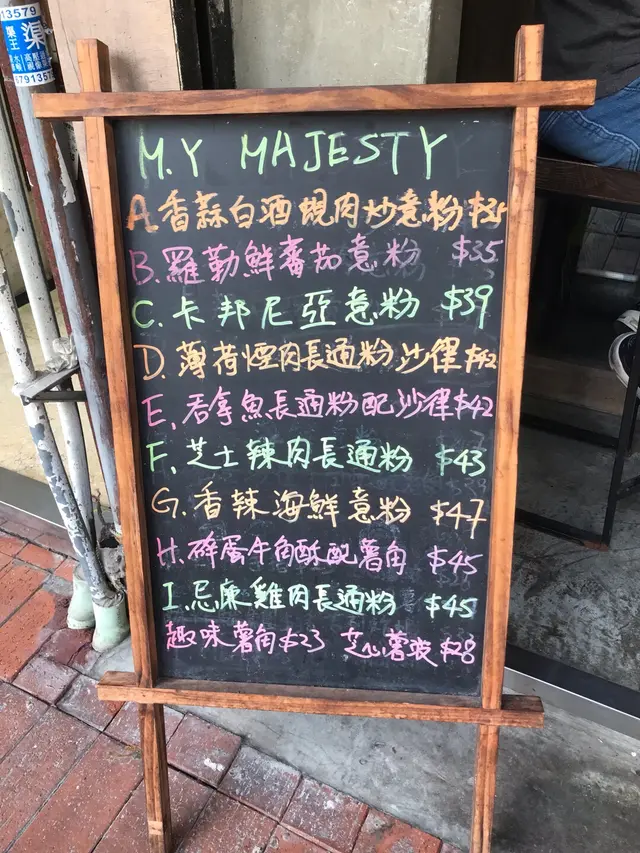 13579
渠王
M.Y MAJESTY
A.香蒜白酒蜆肉炒意粉 $35
B.羅勒鮮蕃茄意粉 $35
C.卡邦尼亞意粉 $39
D.薄荷煙肉長通粉沙律$42
E.吞拿魚長通粉配沙律$42
F.芝士辣肉長通粉 $43
G.香辣海鮮意粉 $47
H.碎蛋牛角酥配薯角 $45
I.忌廉雞肉長通粉 $45
趣味薯角$23 芝心薯蓉$28